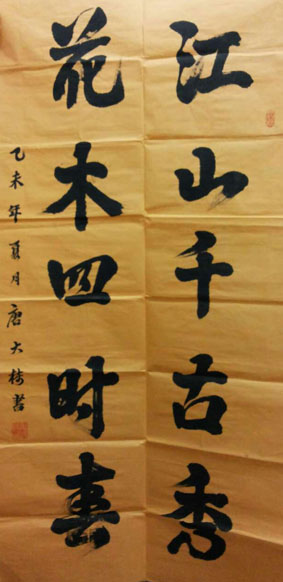 江山千古秀
花木四时春
乙未年夏月唐大梅书